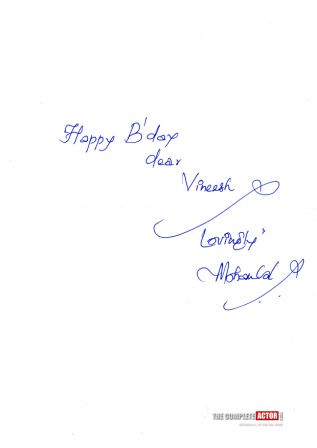 Happy B'day
dear
Vineesh
Lovingly'
Mohanlal
THE COMPLETE ACTOR